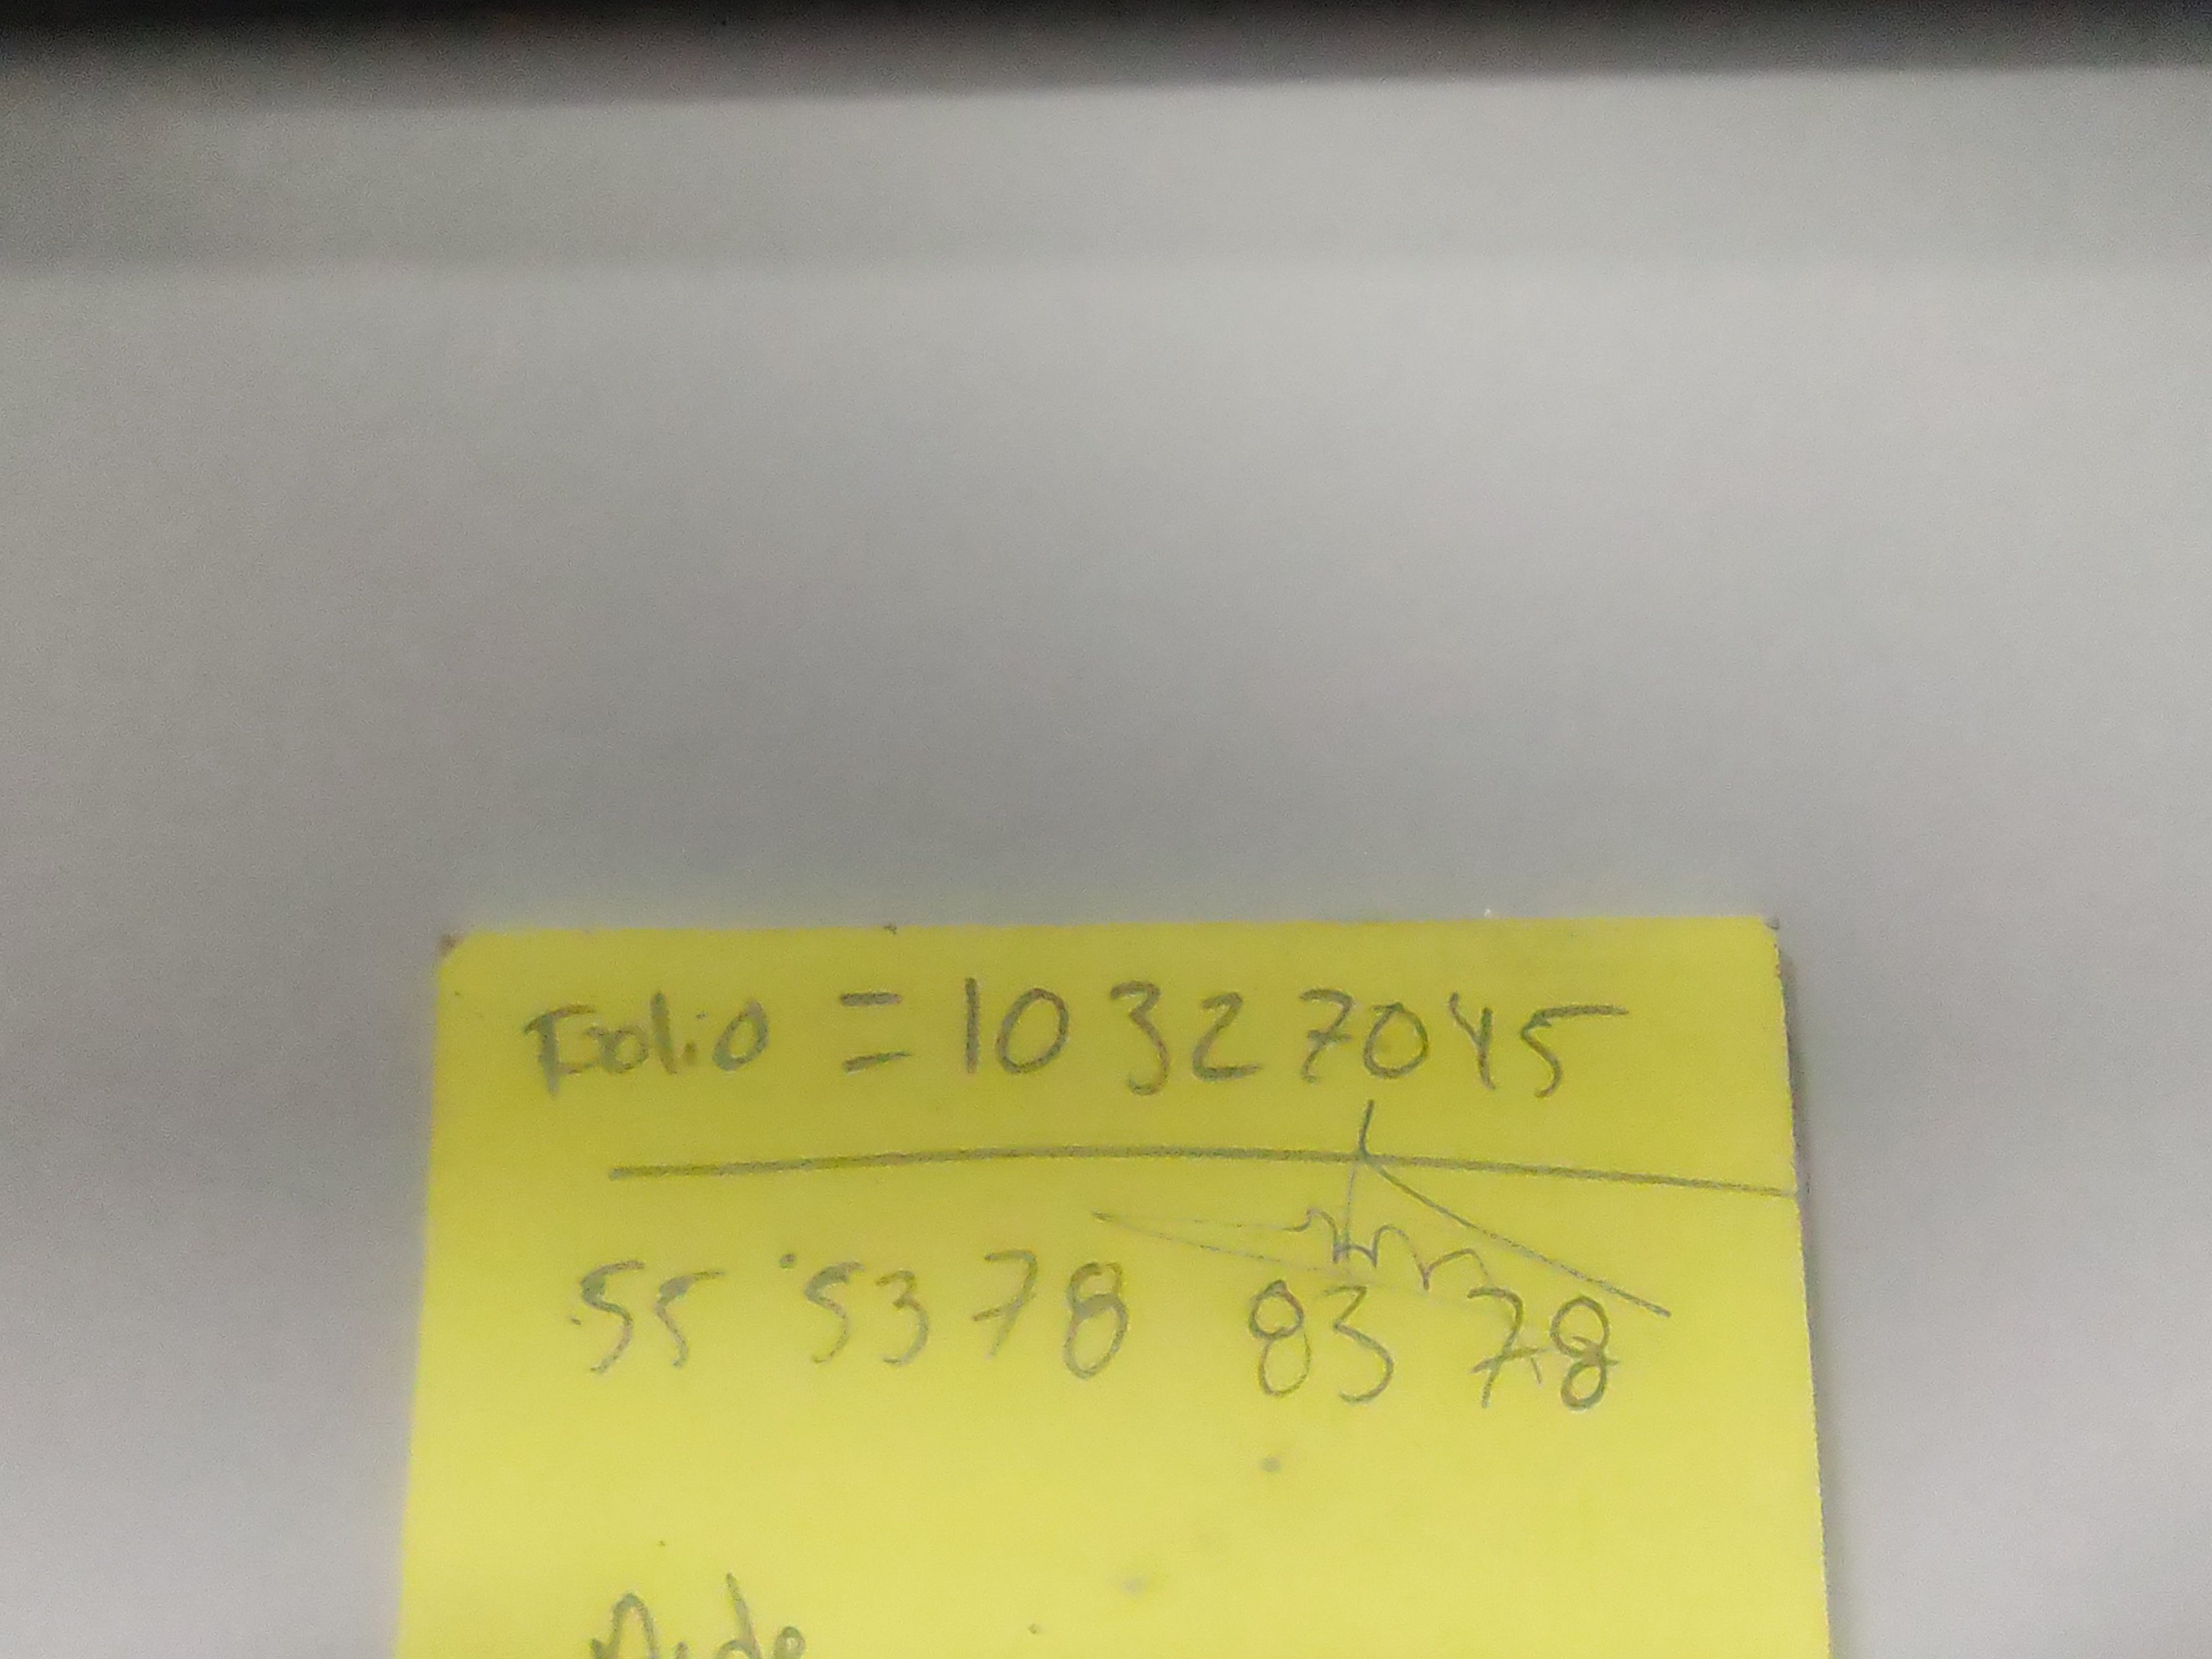 Folio = 10 32 7045
55 53 78 83 78